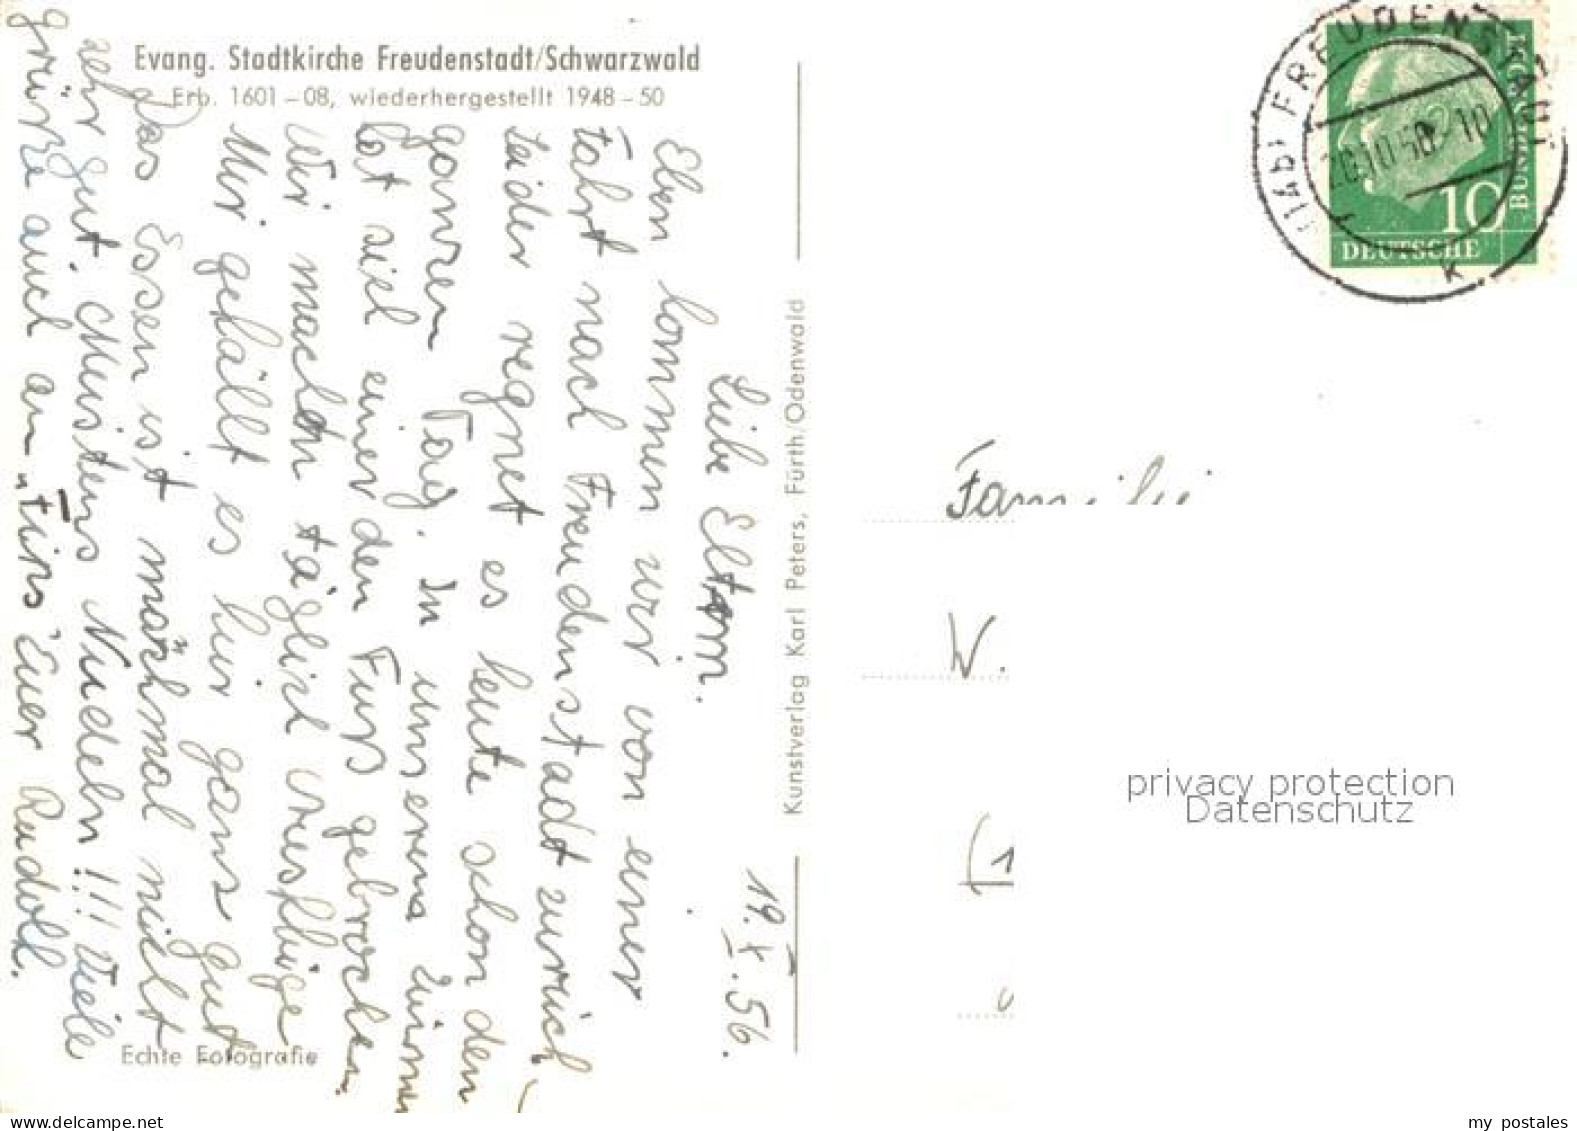 Evang. Stadtkirche Freudenstadt/Schwarzwald
Erb. 1601-08, wiederhergestellt 1948-50
19.X.56.
Liebe Eltern.
Eben kommen wir von einer
Fahrt nach Freudenstadt zurück,
Leider regnet es heute schon den
ganzen Tag. In unserem Zimmer
hat sich einer den Fuß gebrochen.
Wir machen täglich
Mir gefällt es hir gans gut
Das Essen ist mächmal nicht
sehr gut. Meistens Nudeln!!! Viele
grüße auch an „Fips" Euer Rudolf.
Echte Fotografie
Kunstverlag Karl Peters, Fürth/Odenwald
FREUDENSTADT
20.10.56
-10
k
10
DEUTSCHE
BUNDESPOST
Familie
W.
(1
privacy protection
Datenschutz
www.delcampe.net
my postales